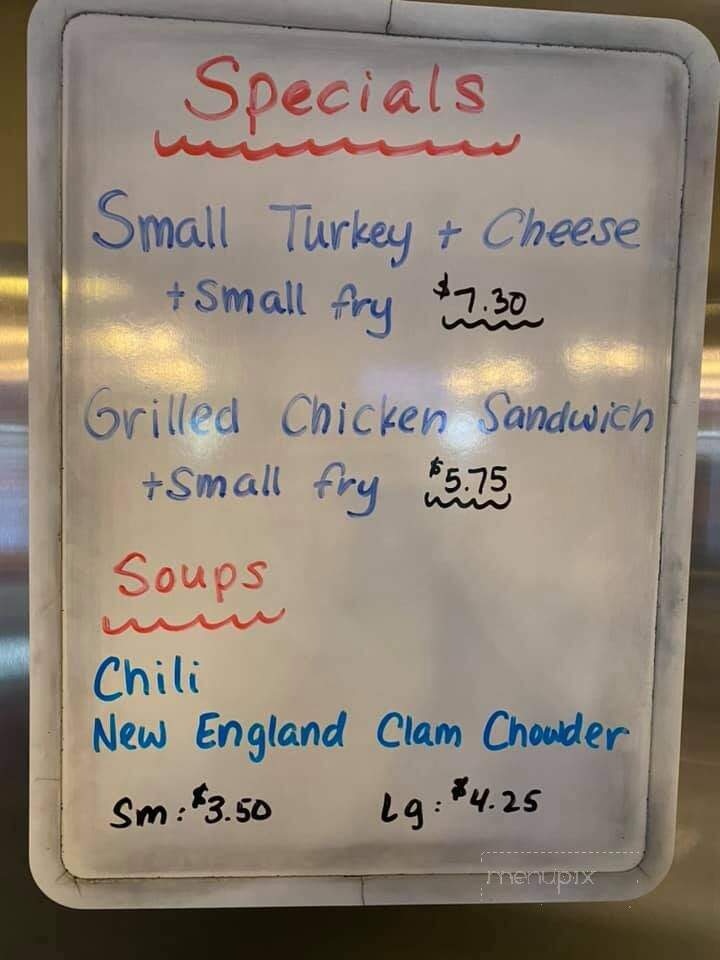 Specials
Small Turkey + Cheese
+ Small fry $7.30
Grilled Chicken Sandwich
+ Small fry $5.75
Soups
Chili
New England Clam Chowder
Sm: $3.50 Lg: $4.25
menupix